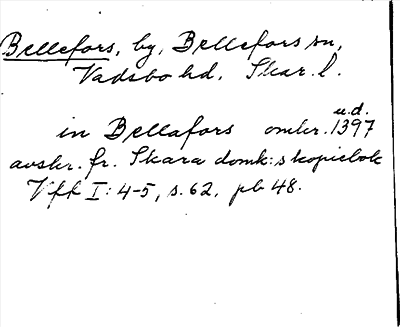 Bellefors, by, Bellefors sn,
Vadsbo hd, Skar. l.
u.d.
in Bellafors omkr. 1397
avskr. fr. Skara domk:s kopiebok
Vff I: 4-5, s. 62, pb 48.